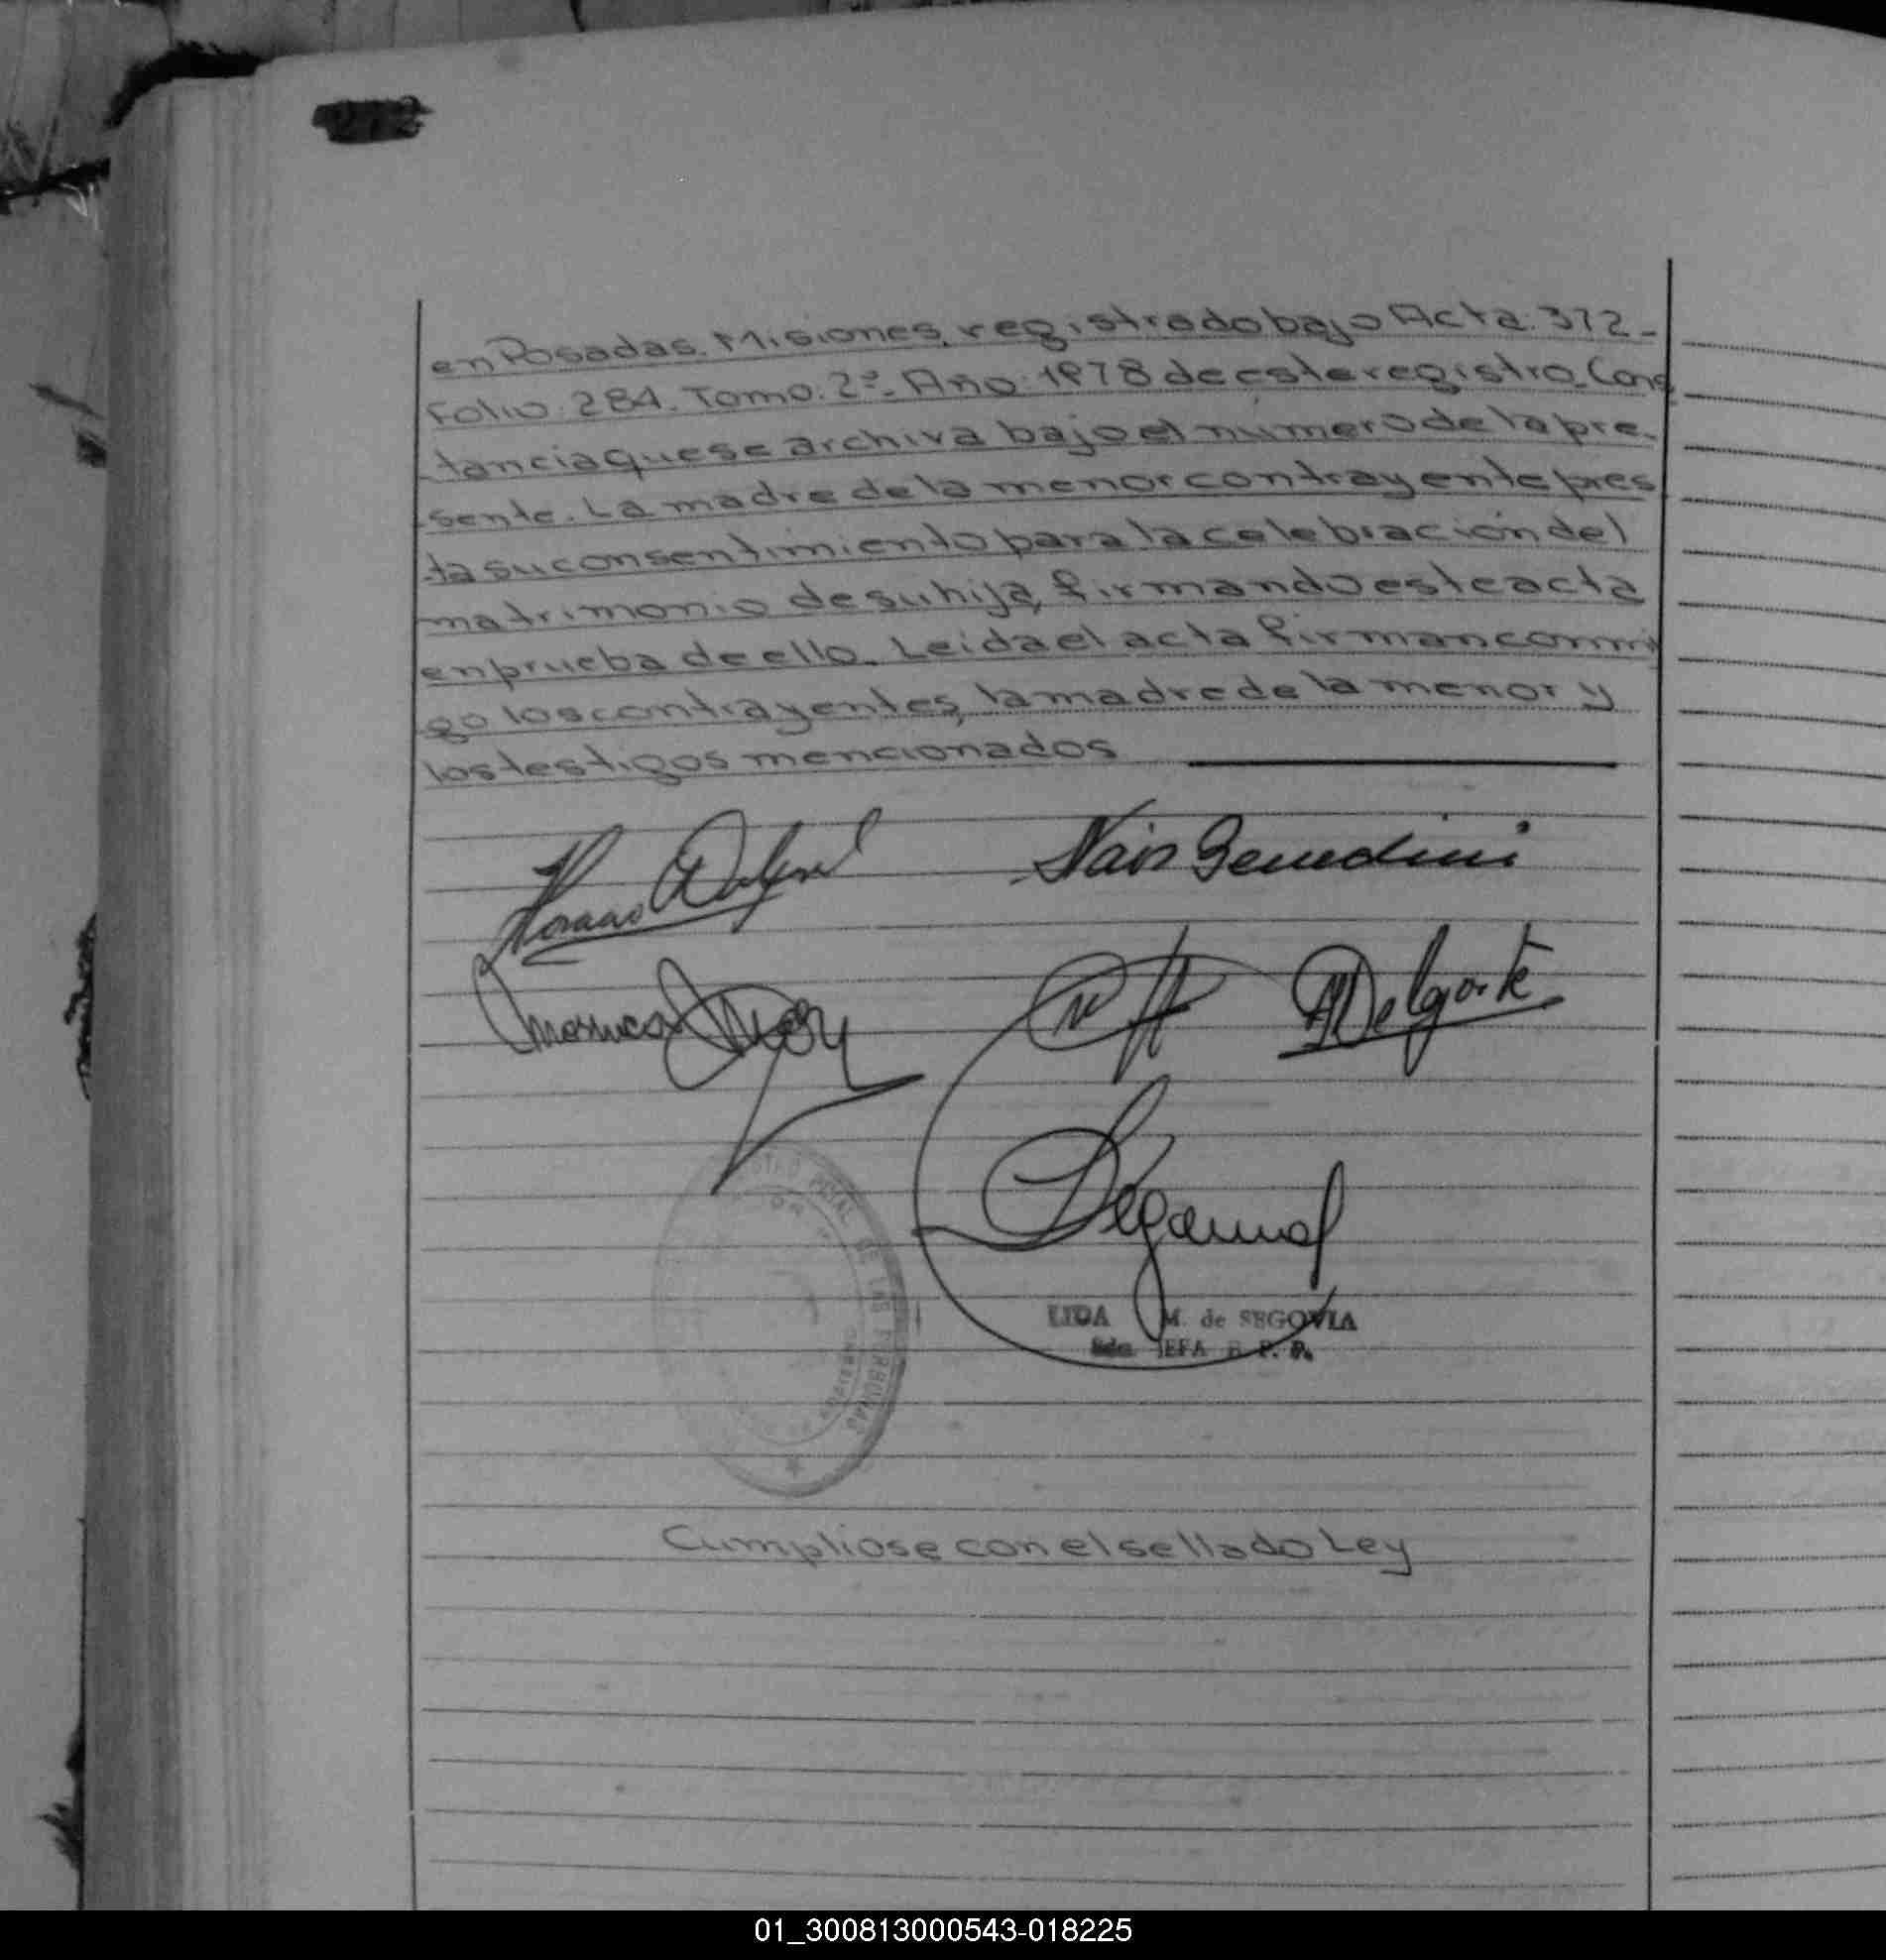 en Posadas. Misiones, registrado bajo Acta. 372-
Folio: 284. Tomo: 2º. Año: 1978 de este registro. Cons
tancia que se archiva bajo el número de la pre-
sente. La madre de la menor contrayente pres
ta su consentimiento para la celebración del
matrimonio de su hija, firmando este acta
en prueba de ello. Leida el acta firman conmi
go los contrayentes, la madre de la menor y
los testigos mencionados
Nair Benedini
Delgark
LIDA M. de SEGOVIA
JEFA R. P. P.
DE LAS PERSONAS
Cumpliose con el sellado Ley
01_300813000543-018225